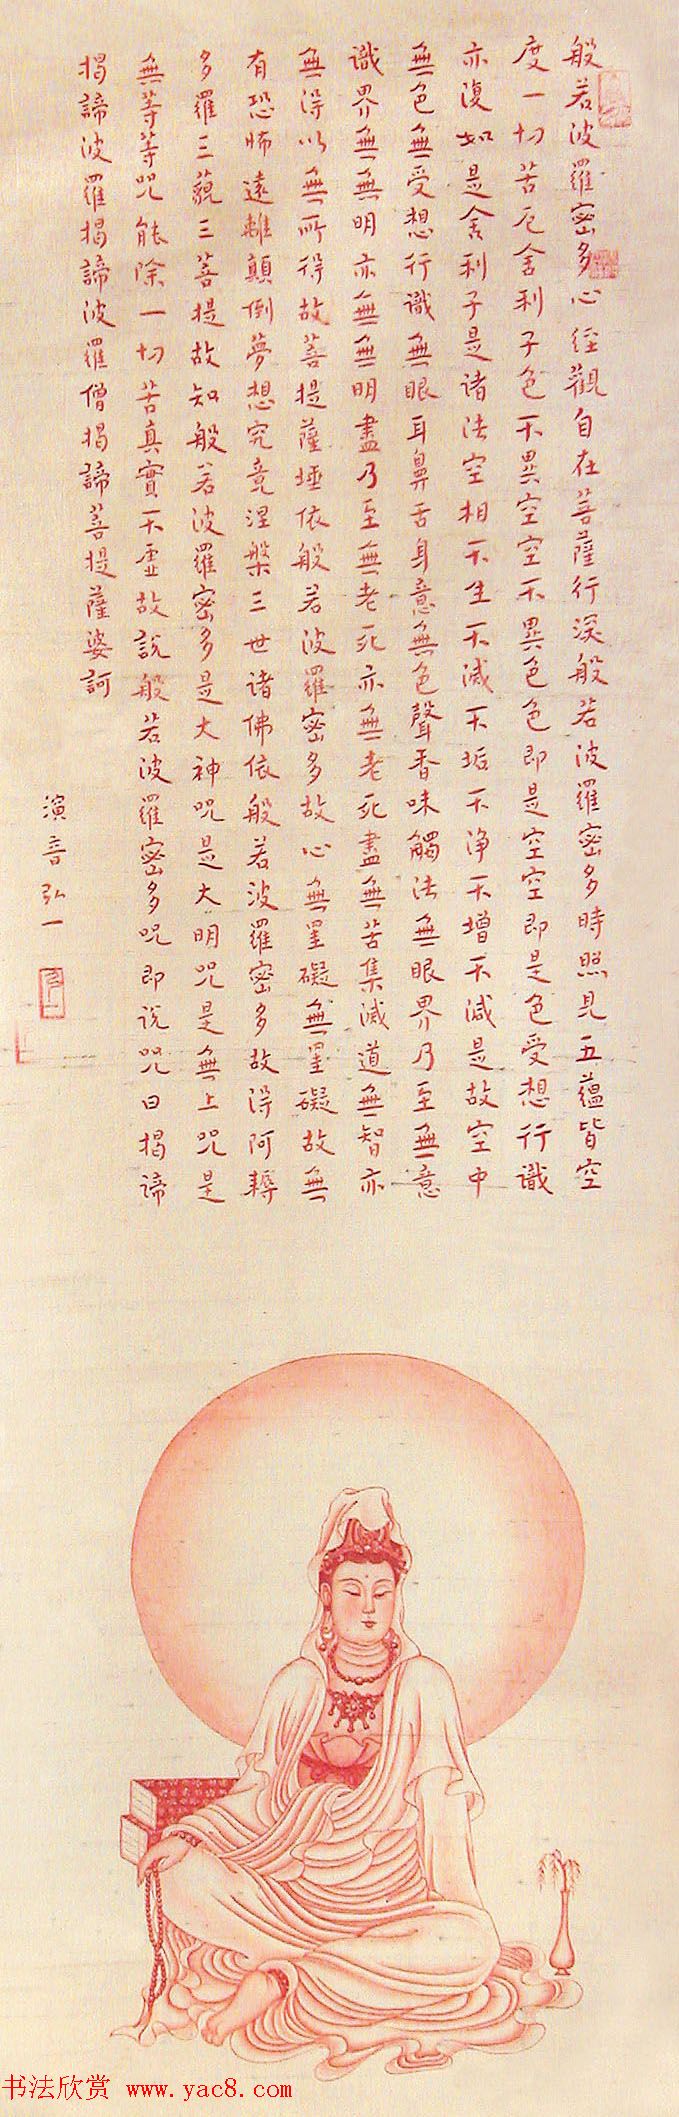 般若波羅密多心經觀自在菩薩行深般若波羅密多時照見五蘊皆空
度一切苦厄舍利子色不異空空不異色色即是空空即是色受想行識
亦復如是舍利子是諸法空相不生不滅不垢不净不增不減是故空中
無色無受想行識無眼耳鼻舌身意無色聲香味觸法無眼界乃至無意
識界無無明亦無無明盡乃至無老死亦無老死盡無苦集滅道無智亦
無得以無所得故菩提薩埵依般若波羅密多故心無罣礙無罣礙故無
有恐怖遠離顛倒夢想究竟涅槃三世諸佛依般若波羅密多故得阿耨
多羅三藐三菩提故知般若波羅密多是大神咒是大明咒是無上咒是
無等等咒能除一切苦真實不虛故說般若波羅密多咒即說咒曰揭諦
揭諦波羅揭諦波羅僧揭諦菩提薩婆訶
演音弘一
书法欣赏 www.yac8.com